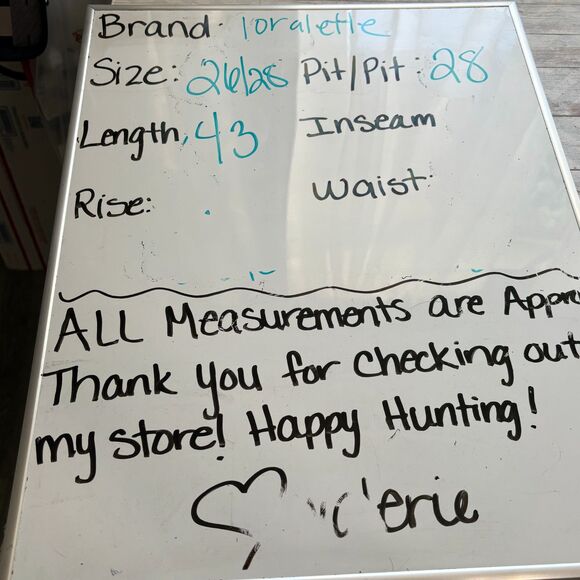 Brand: loralette
Size: 26/28 Pit/Pit: 28
Length: 43 Inseam
Rise: Waist:
ALL Measurements are
Thank you for checking out
my store! Happy Hunting!